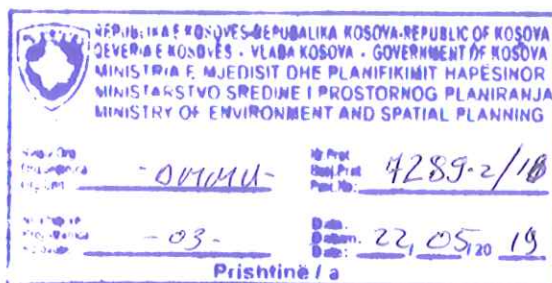 REPUBLIKA E KOSOVËS-REPUBLIKA KOSOVA-REPUBLIC OF KOSOVA
QEVERIA E KOSOVËS - VLADA KOSOVA - GOVERNMENT OF KOSOVA
MINISTRIA E MJEDISIT DHE PLANIFIKIMIT HAPËSINOR
MINISTARSTVO SREDINE I PROSTORNOG PLANIRANJA
MINISTRY OF ENVIRONMENT AND SPATIAL PLANNING
Nr. Prot
7289-2/18
-03-
Data.
Datum. 22, 05, 20 19
Date:
Prishtinë / a